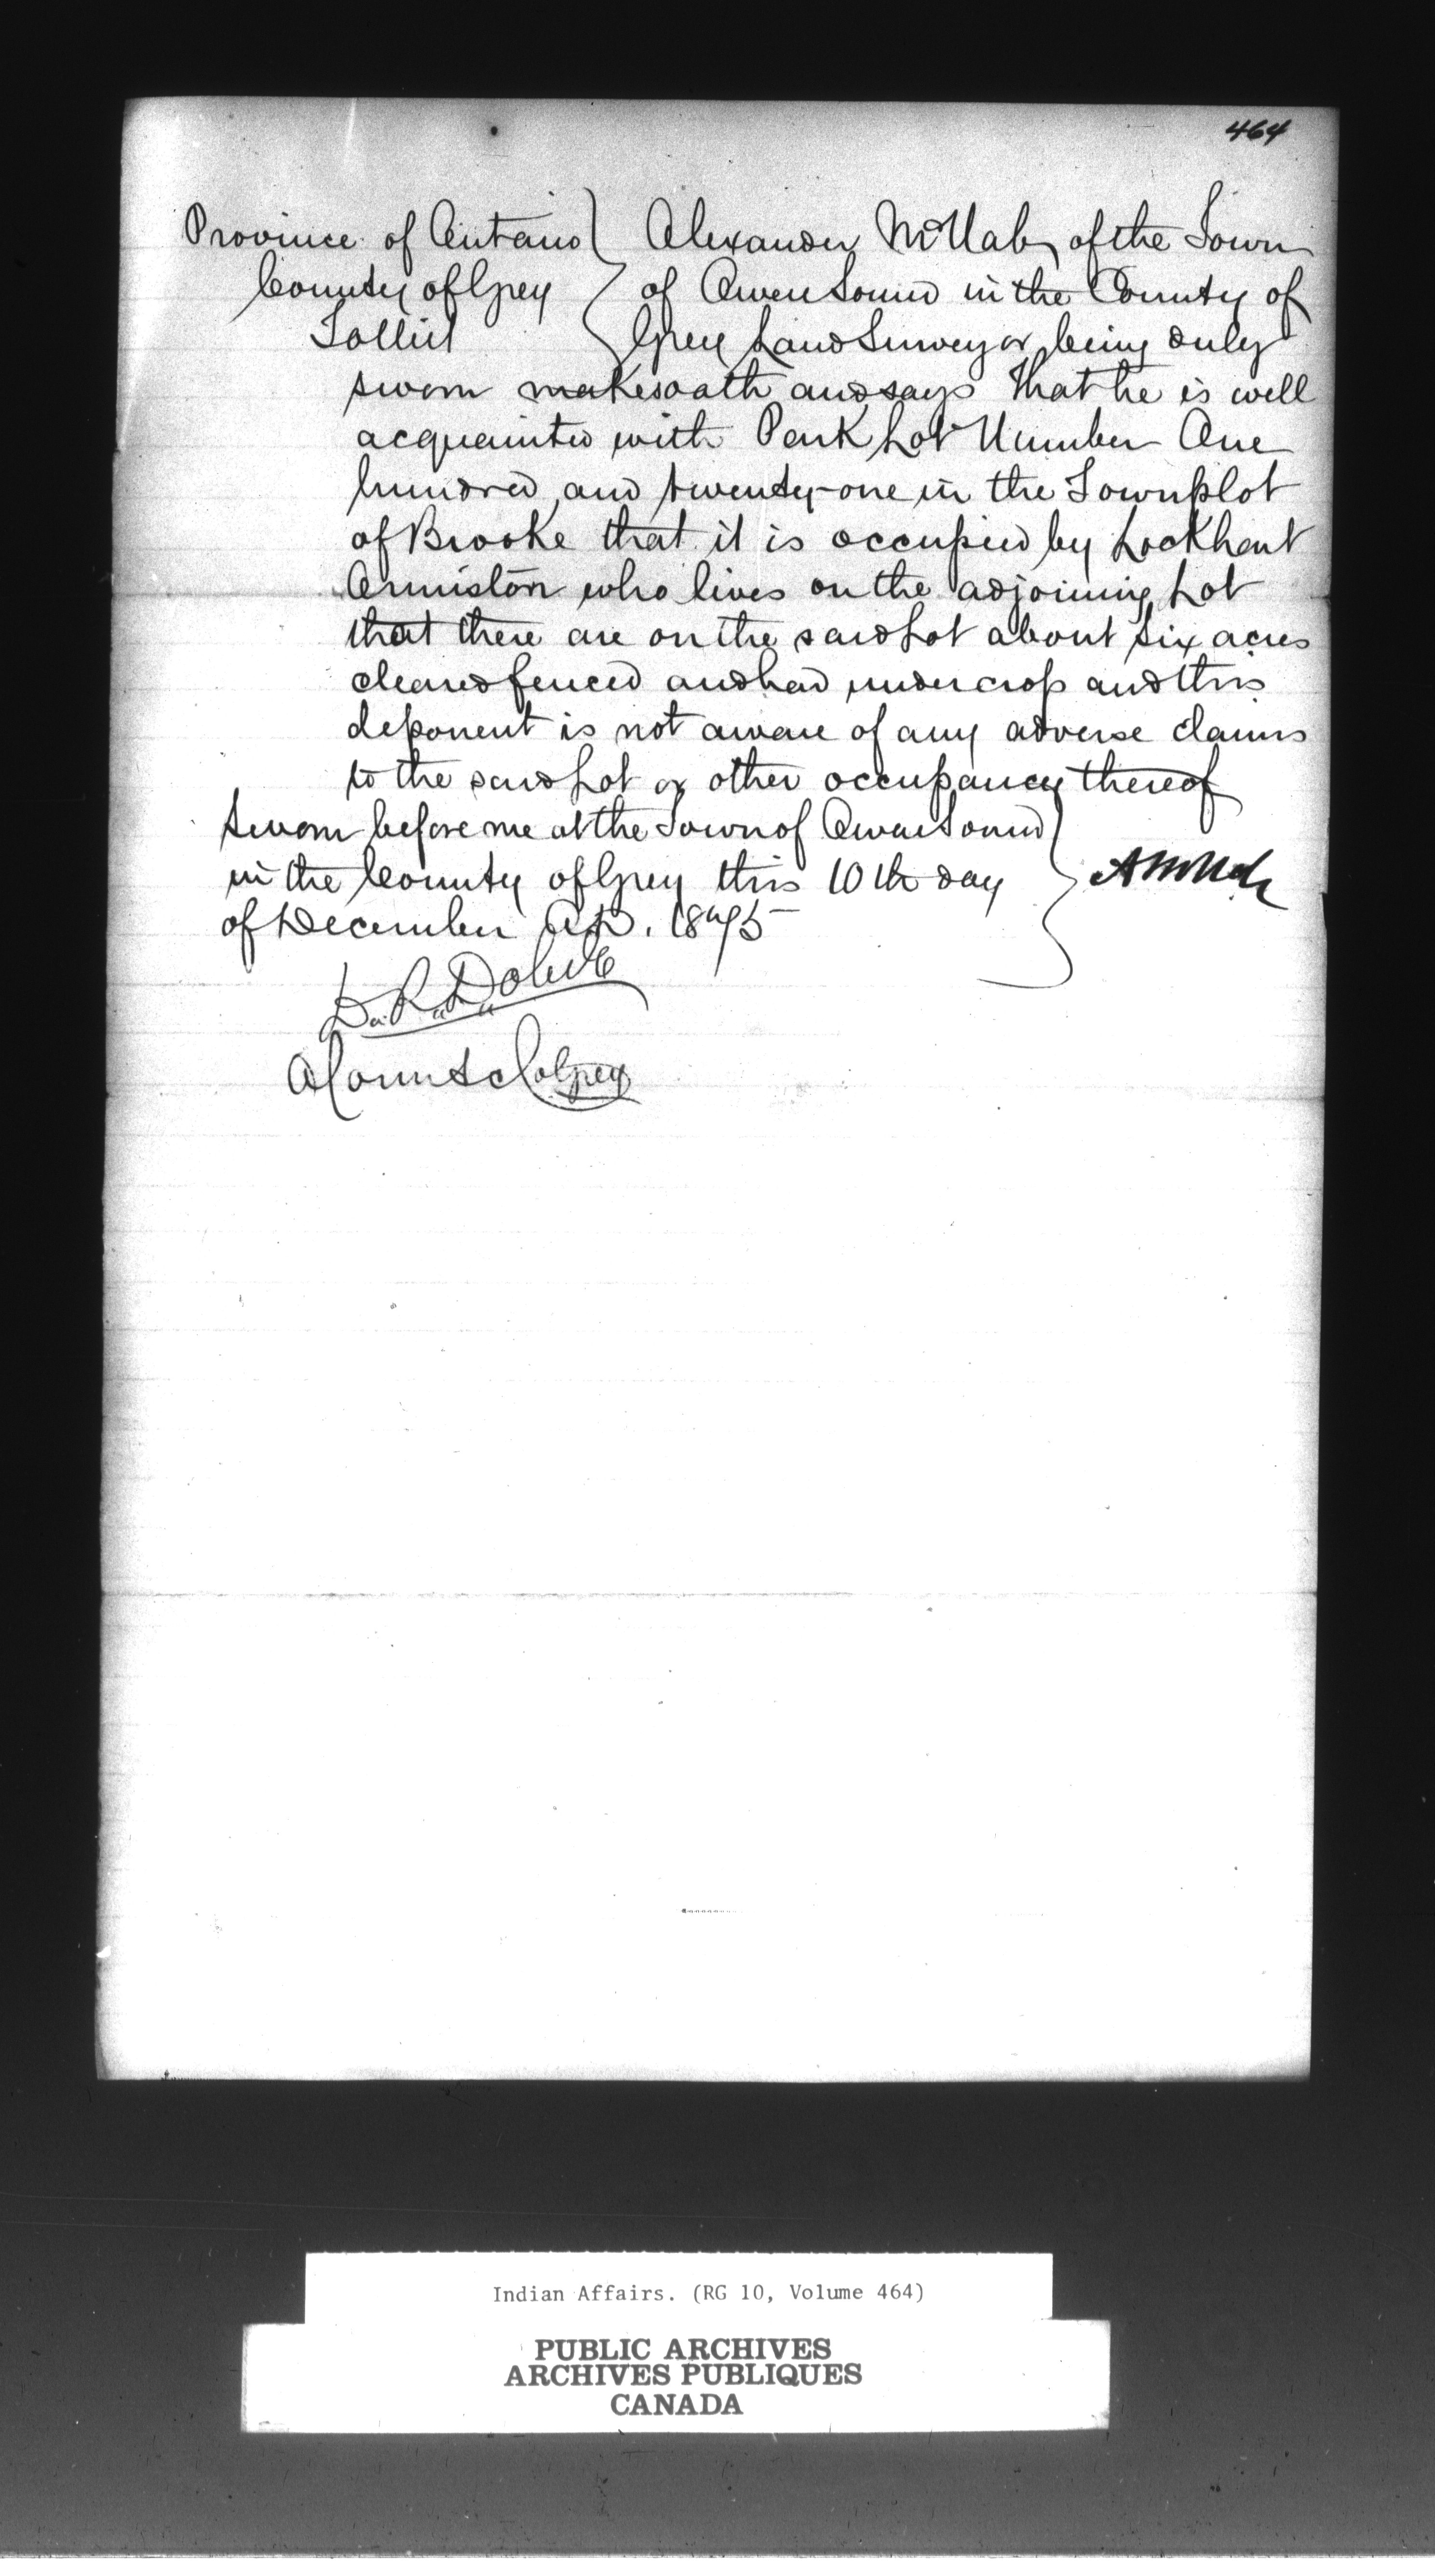 464
Province of Ontario } Alexander McNab of the Town
County of Grey } of Owen Sound in the County of
To Wit } Grey Land Surveyor being duly
sworn makes oath and says That he is well
acquainted with Park Lot Number One
hundred and twenty-one in the Townplot
of Brooke that it is occupied by Lockhart
Armiston who lives on the adjoining Lot
that there are on the said Lot about six acres
cleared fenced and had under crop and this
deponent is not aware of any adverse claims
to the said Lot or other occupancy thereof
Sworn before me at the Town of Owen Sound }
in the County of Grey this 10th day } A McNab
of December A.D. 1875
D. R. Dobie
A Commr &c Co Grey
Indian Affairs. (RG 10, Volume 464)
PUBLIC ARCHIVES
ARCHIVES PUBLIQUES
CANADA